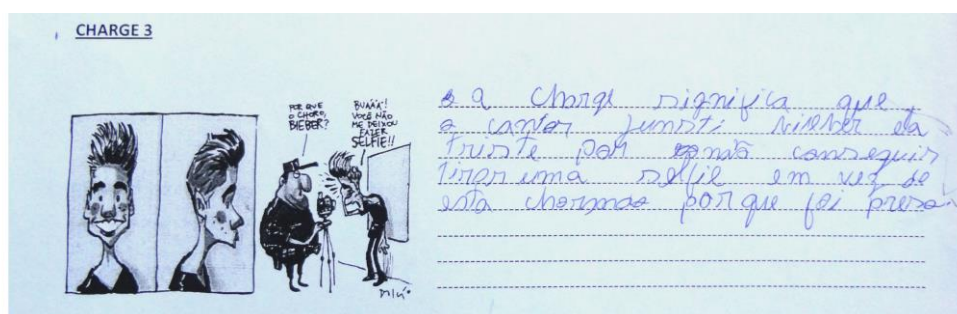 CHARGE 3
POR QUE
O CHORO,
BIEBER?
BUÁÁÁ!
VOCÊ NÃO
ME DEIXOU
FAZER
SELFIE!!
a charge significa que
o cantor junsti bieber eta
triste por não conseguir
tirar uma selfie em vez de
esta chormao por que foi preso